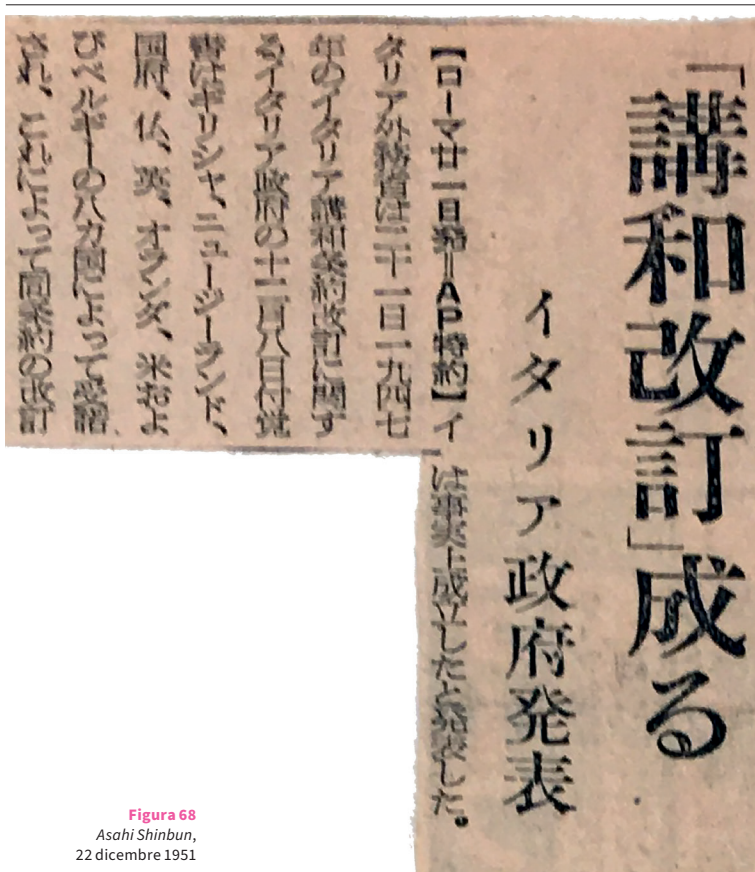 「講和改訂」成る
イタリア政府発表
【ローマ廿一日発＝ＡＰ特約】イ
タリア外務省は二十一日一九四七
年のイタリア講和条約改訂に関す
るイタリア政府の十二月八日付覚
書はギリシャ、ニュージーランド、
国府、仏、英、オランダ、米およ
びベルギーの八カ国によって受諾
され、これによって同条約の改訂
は事実上成立したと発表した。
Figura 68
Asahi Shinbun,
22 dicembre 1951